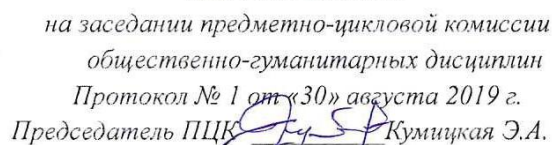 на заседании предметно-цикловой комиссии
общественно-гуманитарных дисциплин
Протокол № 1 от «30» августа 2019 г.
Председатель ПЦК ____________ Кумицкая Э.А.